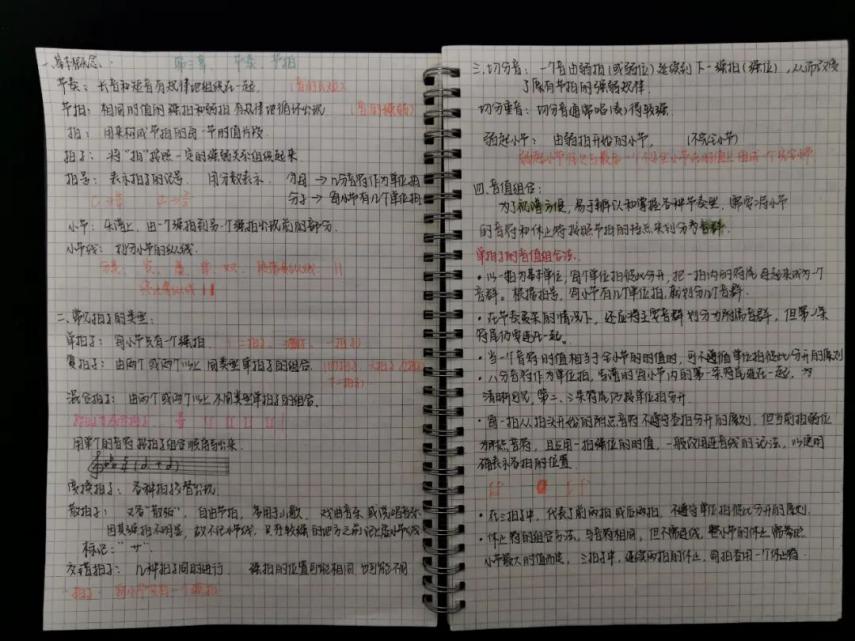 一、基本概念、 第三章、节奏、节拍
节奏：长音和短音有规律地组织在一起。
节拍：相同时值的强拍和弱拍有规律地循环出现 （音的强弱）
拍：用来构成节拍的每一时值片段
拍子：将“拍”按照一定的强弱关系组织起来
拍号：表示拍子的记号 用分数表示 分母→几分音符作为单位拍
分子→每小节有几个单位拍
小节：乐谱上，由一个强拍到另一个强拍出现前的部分.
小节线：划分小节的纵线.
二、常见拍子的类型：
单拍子：每小节只有一个强拍.
复拍子：由两个或两个以上同类型单拍子的组合.
混合拍子：由两个或两个以上不同类型单拍子的组合.
用单个的音符将拍子组合顺序写出来.
变换拍子：各种拍子交替出现.
散拍子：又名“散板”，自由节拍，多用于山歌、戏曲音乐或说唱音乐
因其强拍不明显，故不记小节线，只在较强的地方之前记上虚小节线
标记：“サ”.
交错拍子：几种拍子同时进行. 强拍的位置可能相同也可能不同
三.切分音：一个音由弱拍（或弱位）延续到下一强拍（强位），从而改变
了原有节拍的强弱规律.
切分重音：切分音通常唱（奏）得较强.
弱起小节：由弱拍开始的小节，（不完全小节）
四.音值组合：
为了视谱方便，易于辨认和掌握各种节奏型，需要将小节
的音符和休止符按照节拍的特点来划分音群.
单拍子的音值组合法.
• 以一拍为基本单位，每个单位拍彼此分开，把一拍内的符尾连起来成为一个
音群。根据拍号，每小节有几个单位拍，就划分几个音群.
• 在节奏复杂的情况下，还应将主要音群划分为附属音群，但第一条
符尾仍要连在一起。
• 当一个音符时值相当于全小节的时值时，可不遵循单位拍彼此分开的原则
• 八分音符作为单位拍，当谱时每小节内的第一条符尾连在一起，为
清晰因见，第二、三条符尾仍按单位拍分开.
• 每一拍从拍头开始的附点音符不遵守各拍分开的原则，但当前拍弱位
为附点音符，且占用一拍强位的时值，一般仍用连音线的记法，以便明
确表示各拍的位置
• 在三拍子中，代表了前两拍或后两拍，不遵守单位拍彼此分开的原则.
• 休止符的组合方法，与音符相同，但不需连线，整小节的休止